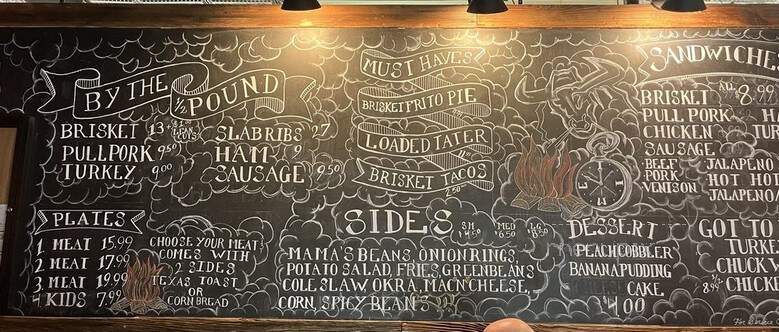 BY THE 1/2 POUND
BRISKET 13
PULLPORK 9.50
TURKEY 9.00
SLAB RIBS 27
HAM 9
SAUSAGE 9.50
MUST HAVES
BRISKET FRITO PIE
LOADED TATER
BRISKET TACOS
SANDWICHES
8.99
BRISKET
PULL PORK
CHICKEN
SAUSAGE
BEEF
PORK
VENISON
JALAPENO
HOT
JALAPENO
PLATES
1. MEAT 15.99
2. MEAT 17.99
3. MEAT 19.99
4 KIDS 7.99
CHOOSE YOUR MEAT
COMES WITH
2 SIDES
TEXAS TOAST
OR
CORN BREAD
SIDES
SM
MED
6.50
LG
MAMA'S BEANS, ONION RINGS,
POTATO SALAD, FRIES, GREEN BEANS
COLE SLAW, OKRA, MAC N CHEESE,
CORN, SPICY BEANS
DESSERT
PEACH COBBLER
BANANA PUDDING
CAKE
4.00
GOT TO
TURKE
CHUCK
8.99
CHICK